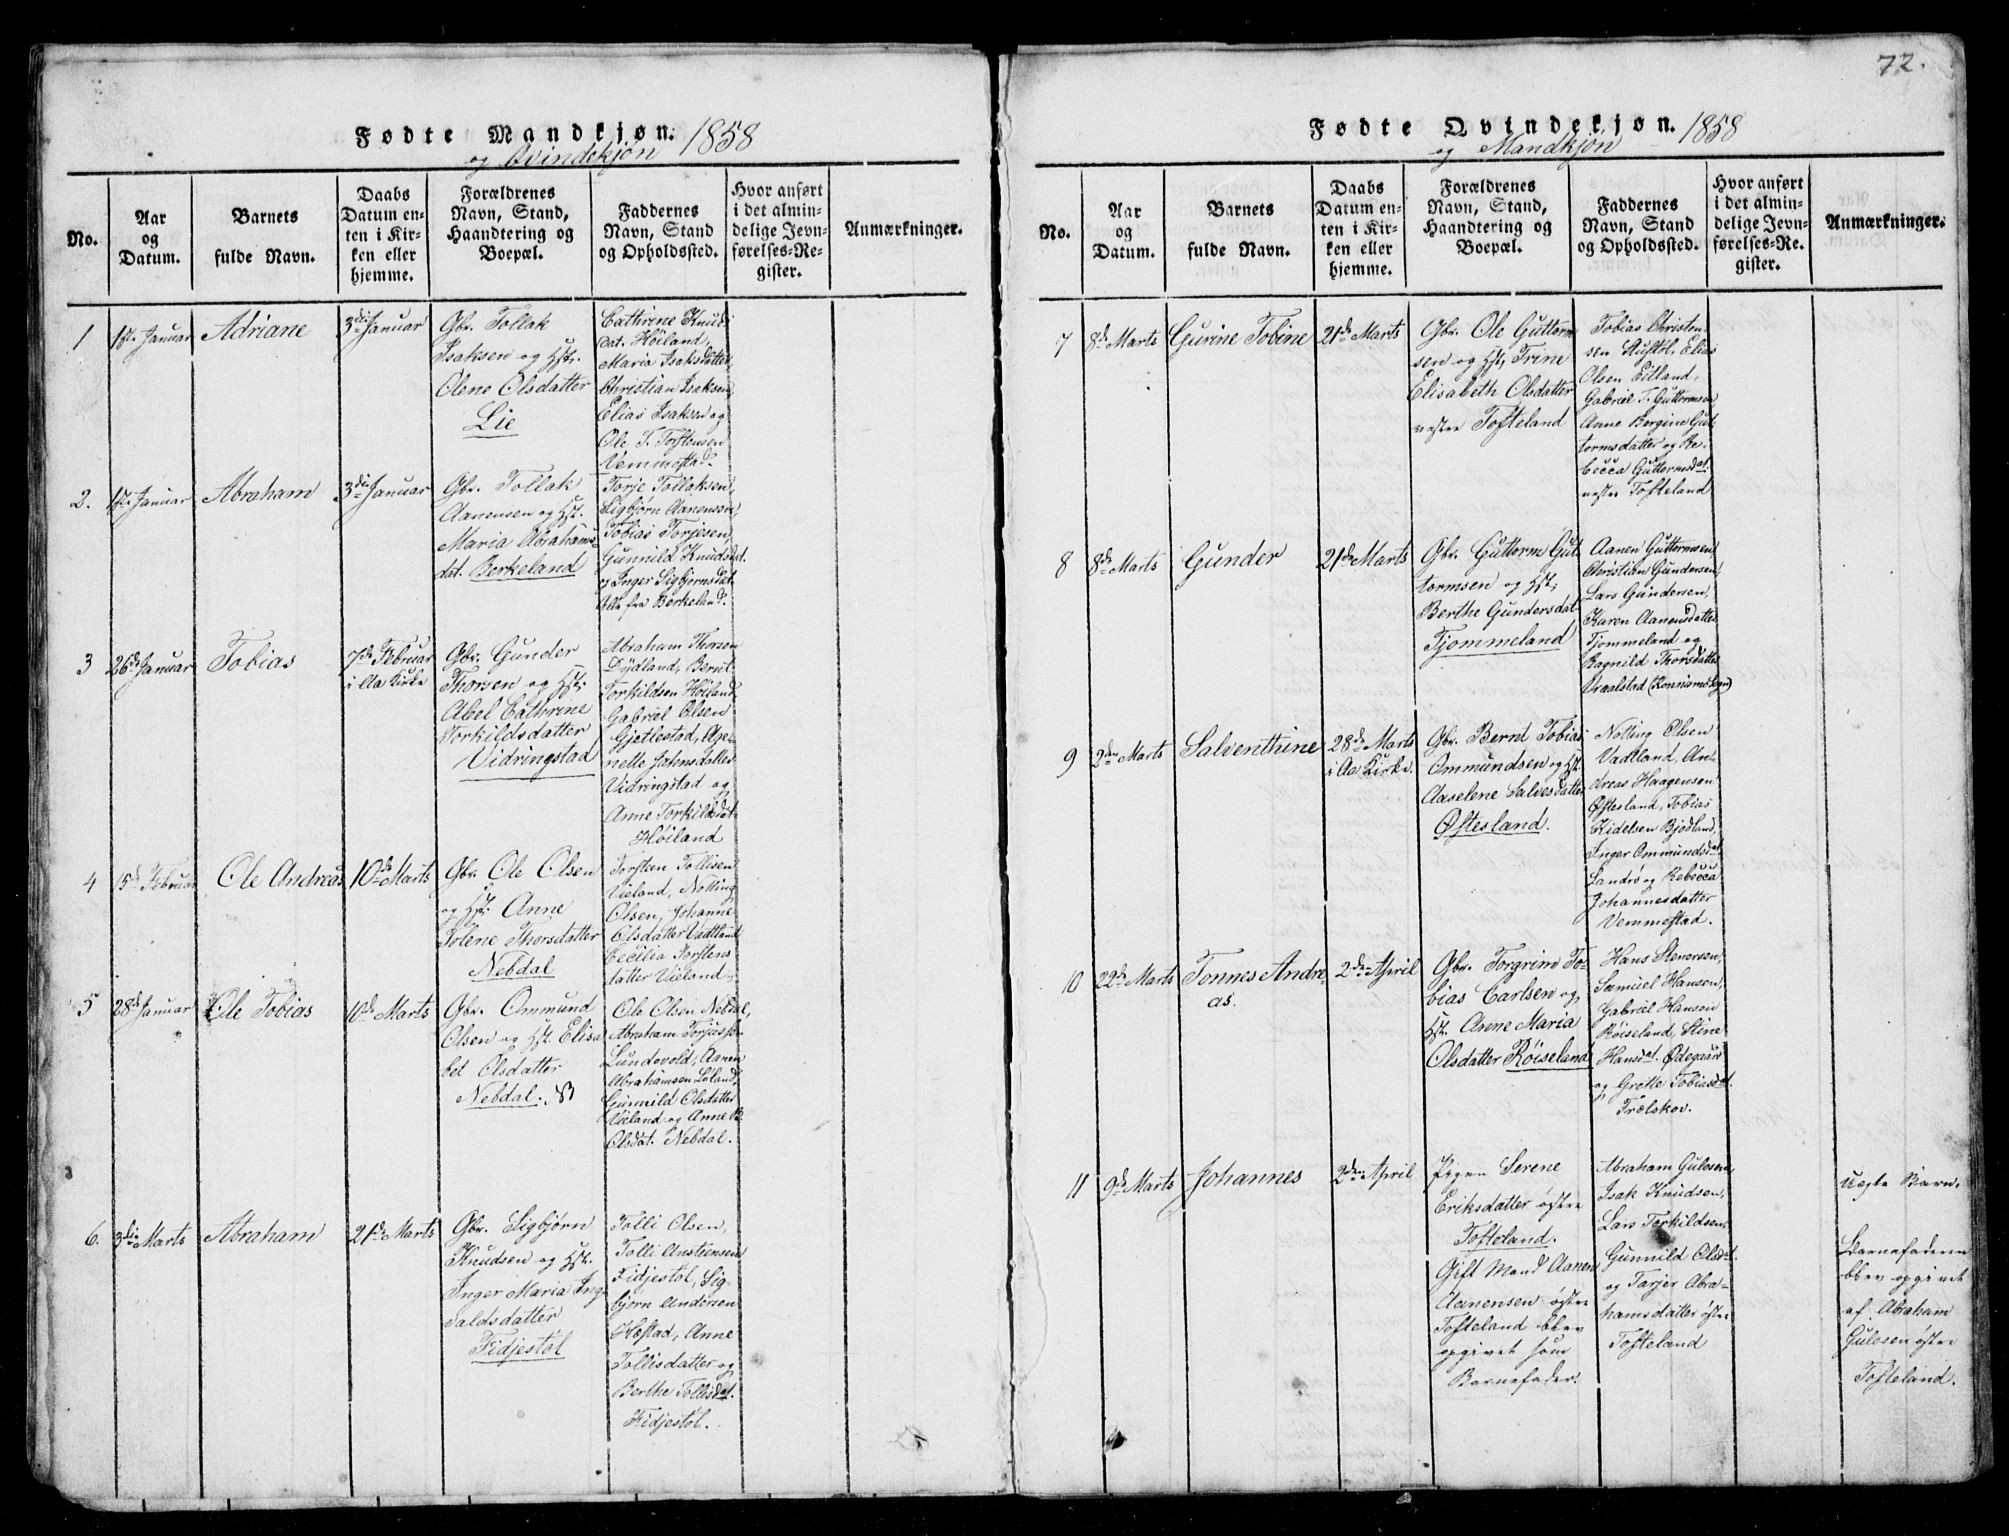 72.
Fødte Mandkjøn. 1858
og Qvindekjøn
No.
Aar
og
Datum.
Barnets
fulde Navn.
Daabs
Datum en-
ten i Kir-
ken eller
hjemme.
Forældrenes
Navn, Stand,
Haandtering og
Boepæl.
Faddernes
Navn, Stand
og Opholdssted.
Hvor anført
i det almin-
delige Jevn-
førelses-Re-
gister.
Anmærkninger.
1
1ste Januar
Adriane
3die Januar
Gbr. Tollak
Isaksen og Hst.
Olene Olsdatter
Lie
Cathrine Knuds
dat. Høiland,
Maria Isaksdatter,
Christian Isaksen,
Elias Isaksen og
Ole T. Torstensen
Vemmestad.
2.
1ste Januar
Abraham
3die Januar
Gbr. Tollak
Aanensen og Hst.
Maria Abrahams-
dat. Berkeland
Torje Tollaksen,
Sigbjørn Aanensen,
Tobias Torjesen,
Gunnild Knudsdat.
og Inger Sigbjørnsdat.
Alle fra Berkeland.
3
26de Januar
Tobias
7de Februar
i Aa Kirke
Gbr. Gunder
Thorsen og Hst.
Abel Cathrine
Torkildsdatter
Vidringstad
Abraham Thorsen
Dydland, Bernt
Torkildsen Høiland,
Gabriel Olsen
Gjetlestad, Age-
nette Johnsdatter
Vidringstad og
Anne Torkildsdat.
Høiland
4
15de Februar
Ole Andreas
10de Marts
Gbr. Ole Olsen
og Hst. Anne
Tolene Thorsdatter
Nebdal
Torsteen Tollisen
Vieland, Notting
Olsen, Johanne
Olsdatter Vadtland
Cecilia Torstens
datter Vieland.
5
28de Januar
Ole Tobias
10de Marts
Gbr. Ommund
Olsen og Hst. Elisa
bet Olsdatter
Nebdal. NB
Ole Olsen Nebdal,
Abraham Torjussen
Lundevold, Aanen
Abrahamsen Loland,
Gunnild Olsdatter
Vieland og Anne B.
Olsdat. Nebdal.
6.
3die Marts
Abraham
21de Marts
Gbr. Sigbjørn
Knudsen og Hst.
Inger Maria Ing-
valdsdatter
Fidjestøl
Tolli Olsen,
Tolli Anstensen
Fidjestøl, Sig-
bjørn Andersen
Hæstad, Anne
Tollisdatter og
Berthe Tollisdat.
Fidjestøl.
Fødte Qvindekjøn. 1858
og Mandkjøn
No.
Aar
og
Datum.
Barnets
fulde Navn.
Daabs
Datum en-
ten i Kir-
ken eller
hjemme.
Forældrenes
Navn, Stand,
Haandtering og
Boepæl.
Faddernes
Navn, Stand
og Opholdssted.
Hvor anført
i det almin-
delige Jevn-
førelses-Re-
gister.
Anmærkninger.
7
8de Marts
Gurine Tobine
21de Marts
Gbr. Ole Guttorm
sen og Hst. Trine
Elisabeth Olsdatter
vestre Tofteland
Tobias Christen-
sen Austøl, Elias
Olsen Eitland,
Gabriel T. Guttormsen
Anne Bergine Gut
tormsdatter og Re-
becca Guttormsdat.
vestre Tofteland
8
8de Marts
Gunder
21de Marts
Gbr. Guttorm Gut
tormsen og Hst.
Berthe Gundersdat.
Tjommeland
Aanen Guttormsen,
Christian Gundersen,
Lars Gundersen,
Karen Aanensdatter
Tjommeland og
Ragnild Thorsdatter
Vraalstad (Konnismo Sogn)
9
2den Marts
Salventhine
28de Marts
i Aa Kirke.
Gbr. Bernt Tobias
Ommundsen og Hst.
Aaselene Salvesdatter
Øftesland.
Notting Olsen
Vadtland, An-
dreas Haagensen
Øftesland, Tobias
Kidelsen Bjodland,
Inger Ommundsdat.
Sandrø og Rebecca
Johannesdatter
Vemmestad.
10
22de Marts
Tønnes Andre-
as.
2den April
Gbr. Torgrim To-
bias Carlsen og
Hst. Anne Maria
Olsdatter Røiseland
Hans Stenersen,
Samuel Hansen,
Gabriel Hansen
Røiseland, Stine
Hansdat. Ødegaard
og Grette Tobiasdat.
Trælskov.
11
9de Marts
Johannes
2den April
Pigen Serene
Eriksdatter østre
Tofteland.
Gift Mand Aanen
Aanensen østre
Tofteland blev
opgivet som
Barnefader.
Abraham Gulosen,
Isak Knudsen,
Lars Torkildsen,
Gunnild Olsdat.
og Tarjer Abra-
hamsdatter østre
Tofteland
Uægte Barn.
Barnefaderen
blev opgivet
af Abraham
Gulosen østre
Tofteland.